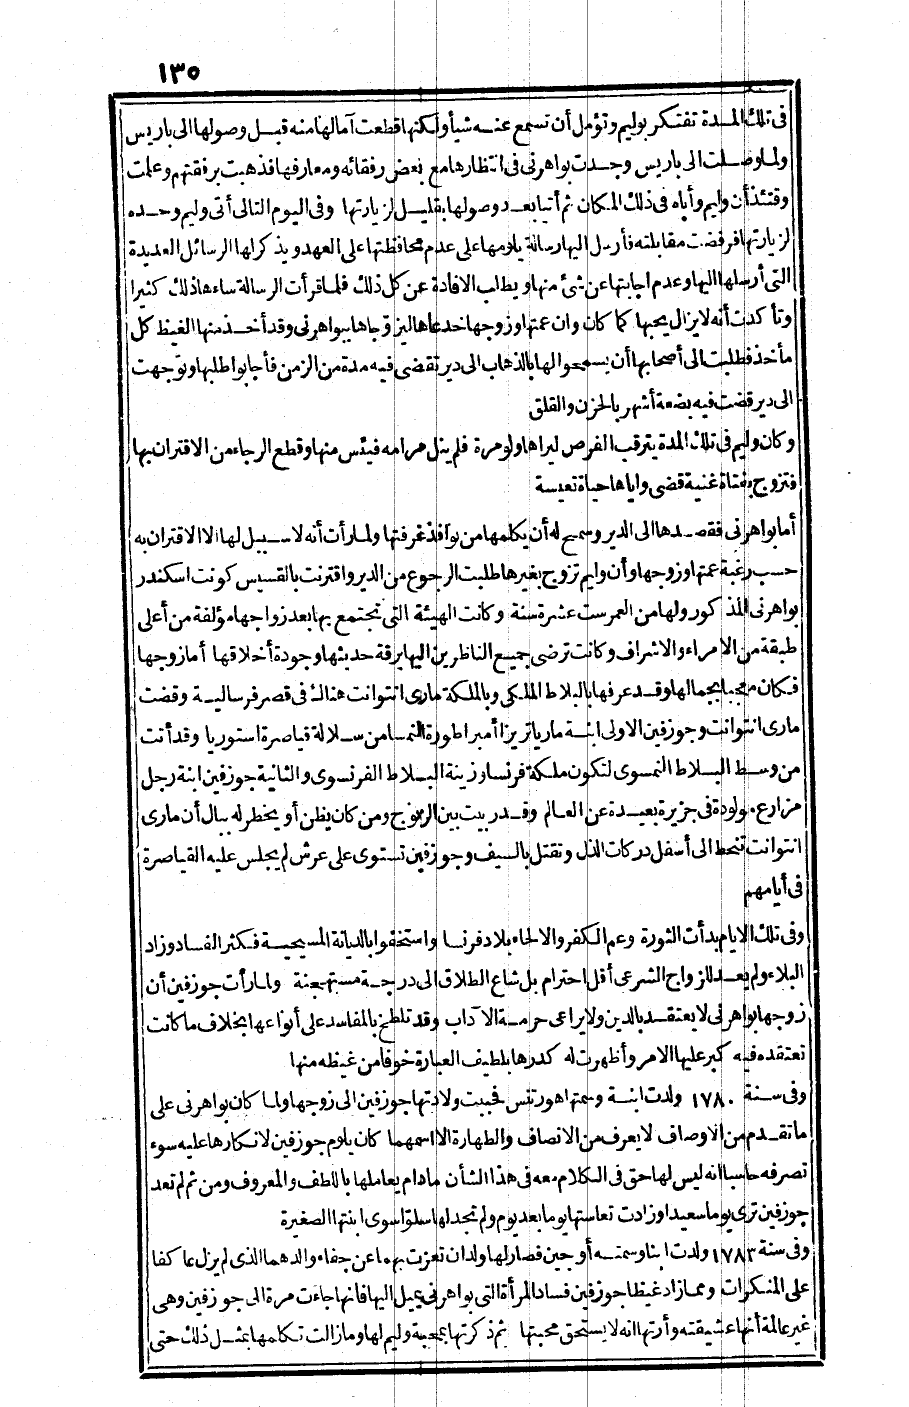 ١٣٥
فى تلك المدة تفتكر بوليم وتؤمل أن تسمع عنه شيأ ولكنها قطعت آمالها منه قبل وصولها الى باريس
ولما وصلت الى باريس وجدت بواهرنى فى انتظارها مع بعض رفقائه ومعارفها فذهبت برفقتهم وعلمت
وقتئذ أن وليم وأباه فى ذلك المكان ثم أتيا بعد وصولها بقليل لزيارتها وفى اليوم التالى أتى وليم وحده
لزيارتها فرفضت مقابلته فأرسل اليها رسالة يلومها على عدم محافظتها على العهد ويذكر لها الرسائل العديدة
التى أرسلها اليها وعدم اجابتها عن شئ منها ويطلب الافادة عن كل ذلك فلما قرأت الرسالة ساءها ذلك كثيرا
وتأكدت أنه لا يزال يحبها كما كان وان عمتها وزوجها خدعاها ليزوّجاها ببواهرنى وقد أخذ منها الغيظ كل
مأخذ فطلبت الى أصحابها أن يسمحوا لها بالذهاب الى دير تقضى فيه مدة من الزمن فأجابوا طلبها وتوجهت
الى دير قضت فيه بضعة أشهر بالحزن والقلق
وكان وليم فى تلك المدة يترقب الفرص ليراها ولو مرة فلم ينل مرامه فيئس منها وقطع الرجاء من الاقتران بها
فتزوج بفتاة غنية قضى واياها حياة تعيسة
أما بواهرنى فقصدها الى الدير وسمح له أن يكلمها من نوافذ غرفتها ولما رأت أنه لا سبيل لها الا الاقتران به
حسب رغبة عمتها وزوجها وأن وليم تزوج بغيرها طلبت الرجوع من الدير واقترنت بالقسيس كونت اسكندر
بواهرنى المذكور ولها من العمر ست عشرة سنة وكانت الهيئة التى تجتمع بها بعد زواجها مؤلفة من أعلى
طبقة من الامراء والاشراف وكانت ترضى جميع الناظرين اليها برقة حديثها وجودة أخلاقها أما زوجها
فكان معجبا بجمالها وقد عرفها بالبلاط الملكى وبالملكة مارى انتوانت هنالك فى قصر فرسالية وقضت
مارى انتوانت وجوزفين الاولى ابنة ماريا تريزا أمبراطورة النمسا من سلالة قياصرة استوريا وقد أتت
من وسط البلاط النمسوى لتكون ملكة فرنسا وزينة البلاط الفرنسوى والثانية جوزفين ابنة رجل
مزارع مولودة فى جزيرة بعيدة عن العالم وقد ربيت بين الزنوج ومن كان يظن أو يخطر له ببال أن مارى
انتوانت تنحط الى أسفل دركات الذل وتقتل بالسيف وجوزفين تستوى على عرش لم يجلس عليه القياصرة
فى أيامهم
وفى تلك الايام بدأت الثورة وعم الكفر والالحاد بلاد فرنسا واستخفوا بالديانة المسيحية فكثر الفساد وزاد
البلاء ولم يعد للزواج الشرعى أقل احترام بل شاع الطلاق الى درجة مستهجنة ولما رأت جوزفين أن
زوجها بواهرنى لا يعتقد بالدين ولا يراعى حرمة الآداب وقد تلطخ بالمفاسد على أنواعها بخلاف ما كانت
تعتقده فيه كبر عليها الامر وأظهرت له كدرها بلطيف العبارة خوفا من غيظه منها
وفى سنة ١٧٨٠ ولدت ابنة وسمتها هورتنس فحببت ولادتها جوزفين الى زوجها ولما كان بواهرنى على
ما تقدم من الاوصاف لا يعرف من الانصاف والطهارة الا اسمهما كان يلوم جوزفين لانكارها عليه سوء
تصرفه حاسبا انه ليس لها حق فى الكلام معه فى هذا الشأن مادام يعاملها باللطف والمعروف ومن ثم لم تعد
جوزفين ترى يوما سعيدا وزادت تعاستها يوما بعد يوم ولم تجد لها سلوا سوى ابنتها الصغيرة
وفى سنة ١٧٨٣ ولدت ابنا وسمته أوجين فصار لها ولدان تعزت بهما عن جفاء والدهما الذى لم يزل عاكفا
على المنكرات ومما زاد غيظا جوزفين فساد المرأة التى بواهرنى يميل اليها فانها جاءت مرة الى جوزفين وهى
غير عالمة أنها عشيقته وأرتها انه لا يستحق محبتها ثم ذكرتها بمحبة وليم لها ومازالت تكلمها بمثل ذلك حتى